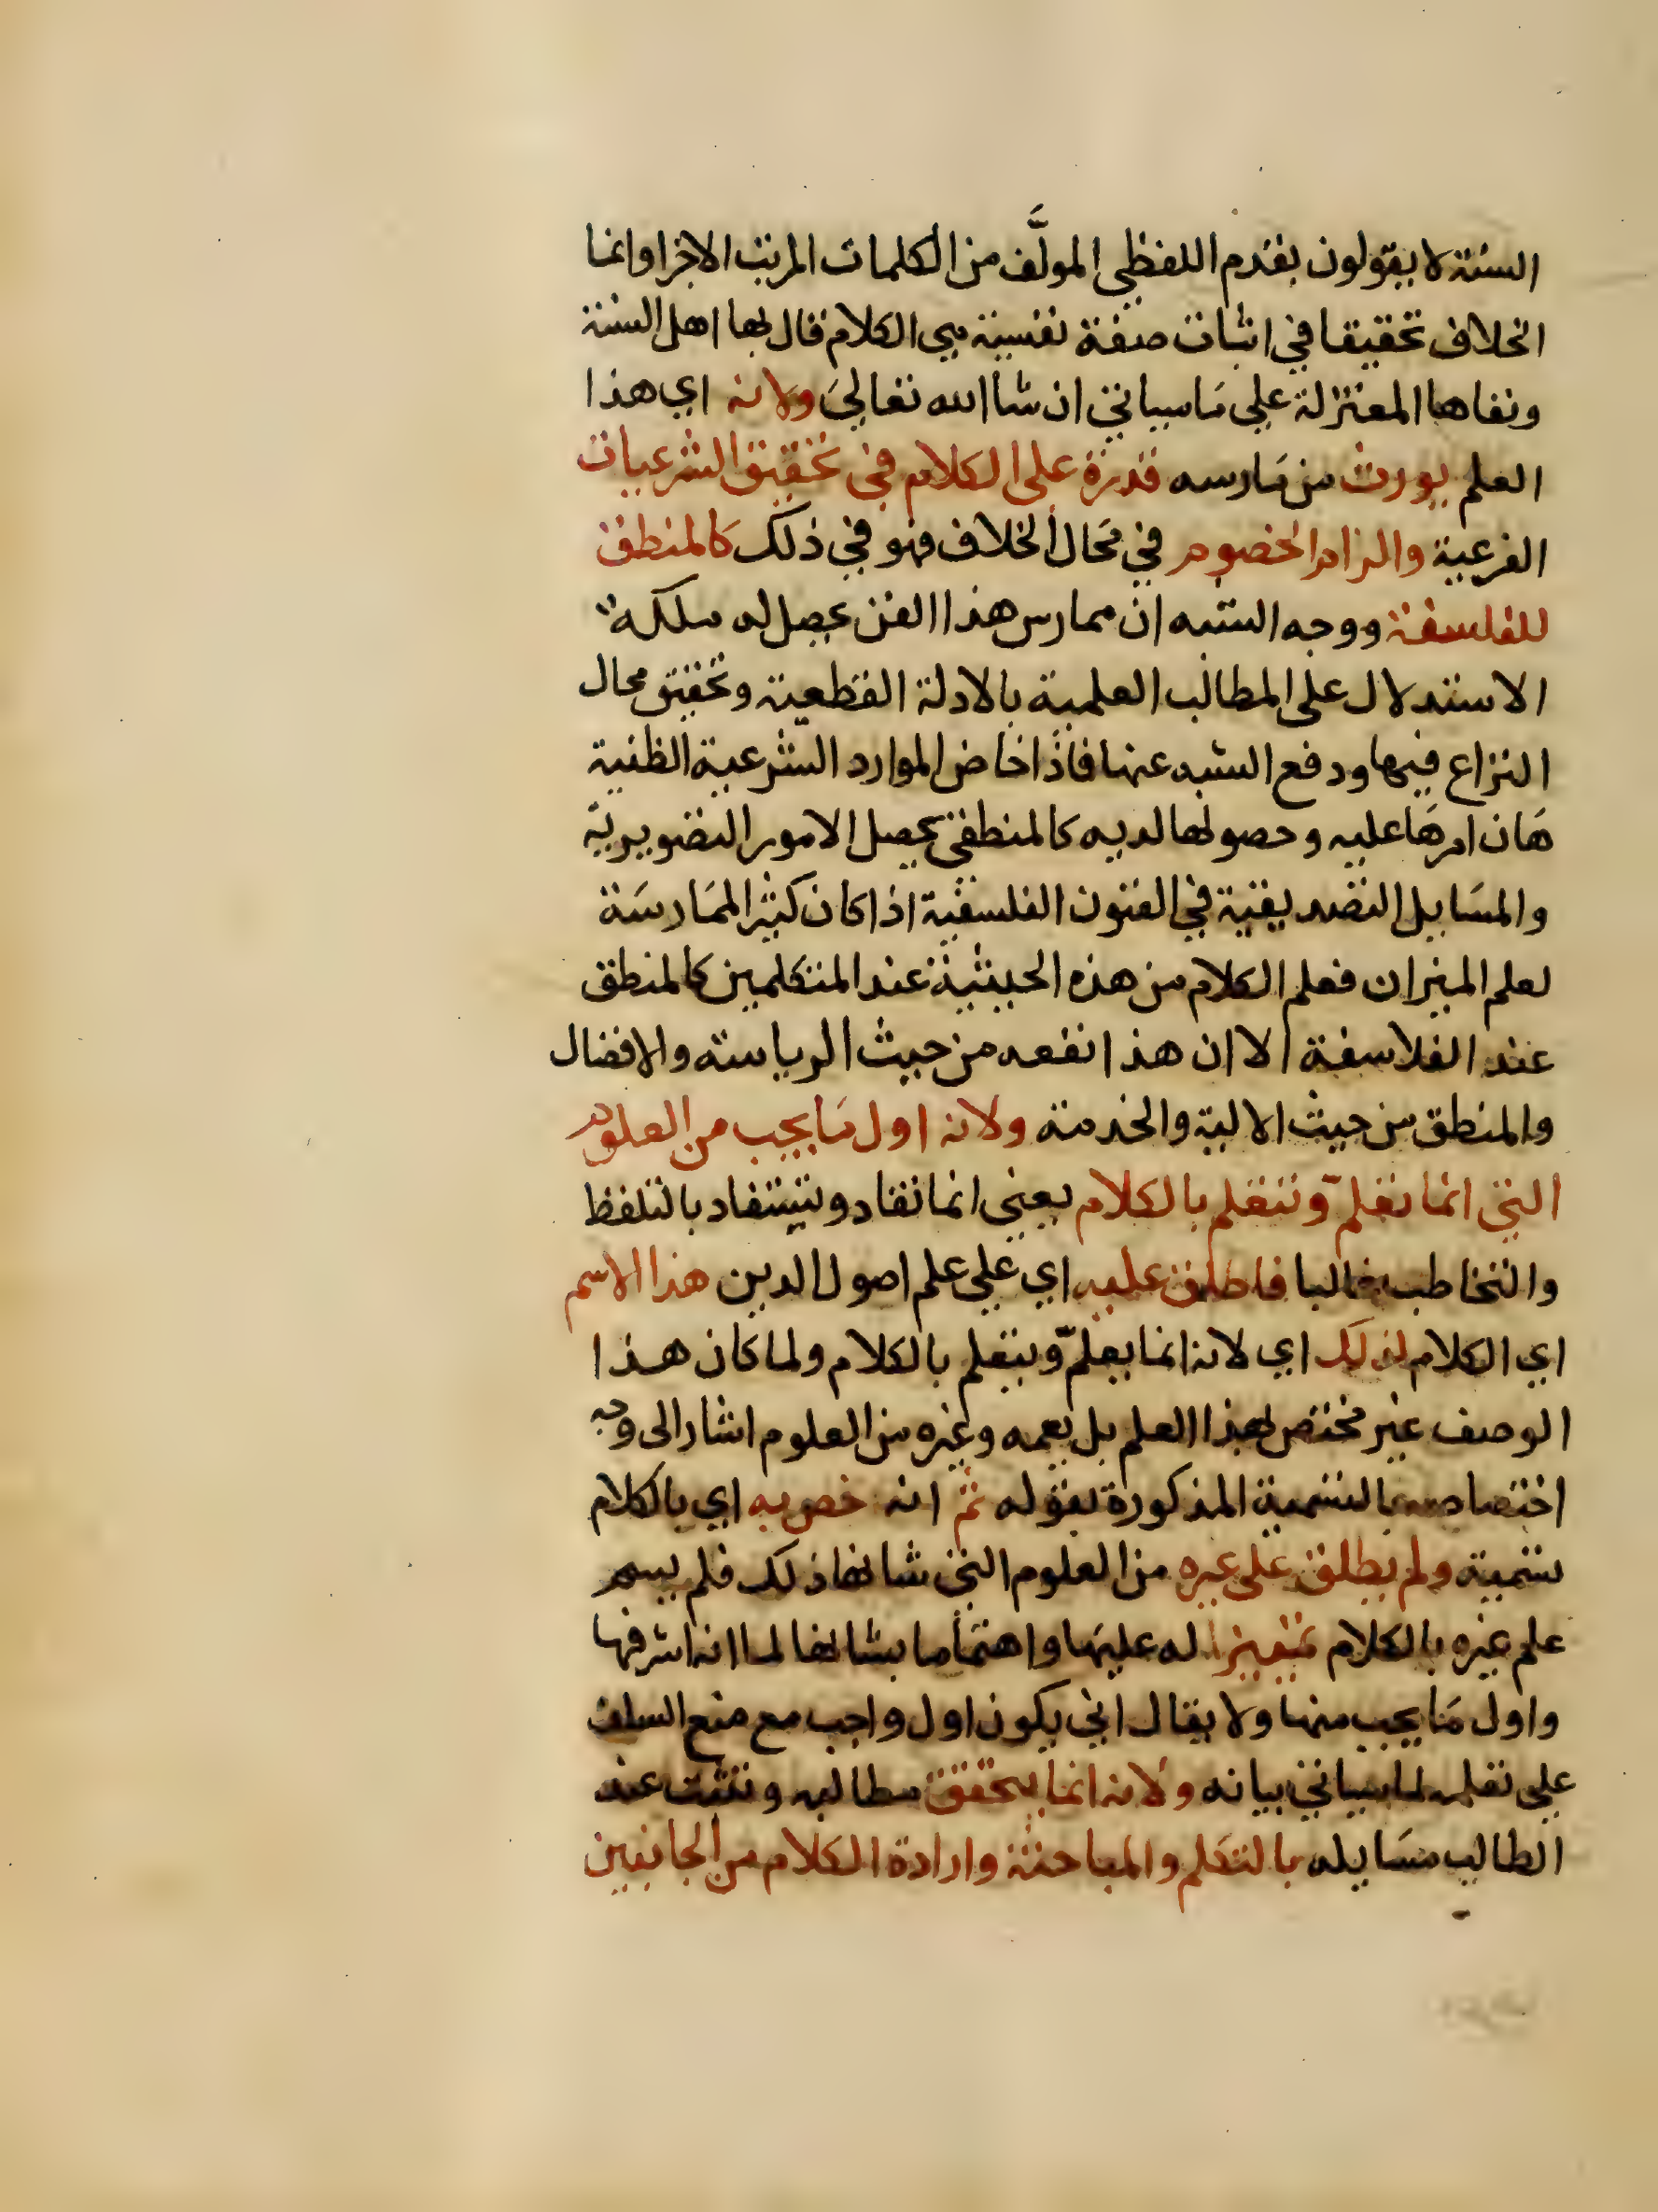 السنة لا يقولون بقدم اللفظي المولَّف من الكلمات المرتب الاجزا وانما
الخلاف تحقيقا في اثبات صفة نفسية هي الكلام قال بها اهل السنة
ونفاها المعتزلة علي مَا سياتي ان شا الله تعالي ولانه اي هذا
العلم يورث من مَارسه قدرة على الكلام في تحقيق الشرعيات
الفرعية والزام الخصوم في مَحال الخلاف فهو في ذلك كَالمنطق
للفلسفة ووجه الشبه ان ممارس هذا الفن يحصل له ملكة
الاستدلال على المطالب العلمية بالادلة القطعية وتحقيق محال
النزاع فيها ودفع الشبه عنها فاذا خاض الموارد الشرعية الظنية
هَان امرهَا عليه وحصولها لديه كالمنطقي يحصل الامور التصويرية
والمسَايل التصديقية في الفنون الفلسفية اذا كان كثير الممَارسَة
لعلم الميزان فعلم الكلام من هذه الحيثية عند المتكلمين كالمنطق
عند الفلاسفة الا ان هذا نفعه من حيث الرياسة والافضال
والمنطق من حيث الالية والخدمة ولانه اول مَا يجب من العلوم
التي انما تعلّم وتتعلم بالكلام يعني انما تفاد وتستفاد بالتلفظ
والتخاطب غالبا فاطلق عليه اي علي علم اصول الدين هذا الاسم
اي الكلام لذلك اي لانه انما يعلّم ويتعلم بالكلام ولما كان هذا
الوصف غير مختص بهذا العلم بل يعمه وغيره من العلوم اشار الى وجه
اختصاصه بالتسمية المذكورة بقوله ثم انه خص به اي بالكلام
تسمية ولم يطلق على غيره من العلوم التي شانها ذلك فلم يسم
علم غيره بالكلام تمييزا له عليها واهتماما بشانها لما انه اشرفها
واول مَا يجب منها ولا يقال اني يكون اول واجب مع منع السلف
علي تعلمه لما سياتي بيانه ولانه انما يتحقق مطالبه وتثبت عند
الطالب مسَايله بالتكلم والمباحثة وارادة الكلام من الجانبين